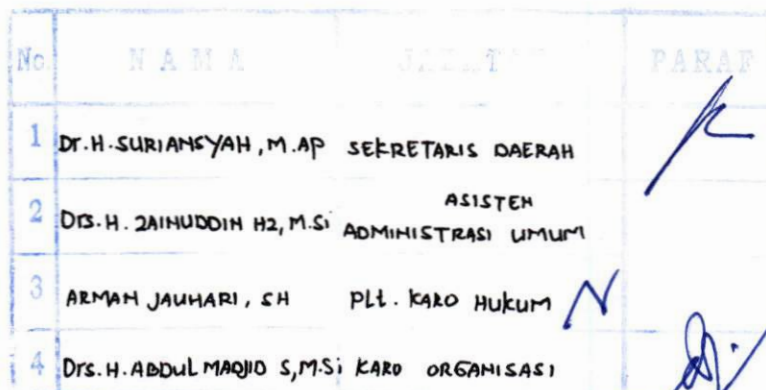 No. NAMA JABATAN PARAF
1 Dr. H. SURIANSYAH, M.AP SEKRETARIS DAERAH
2 Drs. H. ZAINUDDIN HZ, M.Si ASISTEN
ADMINISTRASI UMUM
3 ARMAN JAUHARI, SH Plt. KARO HUKUM
4 Drs. H. ABDUL MADJID S, M.Si KARO ORGANISASI